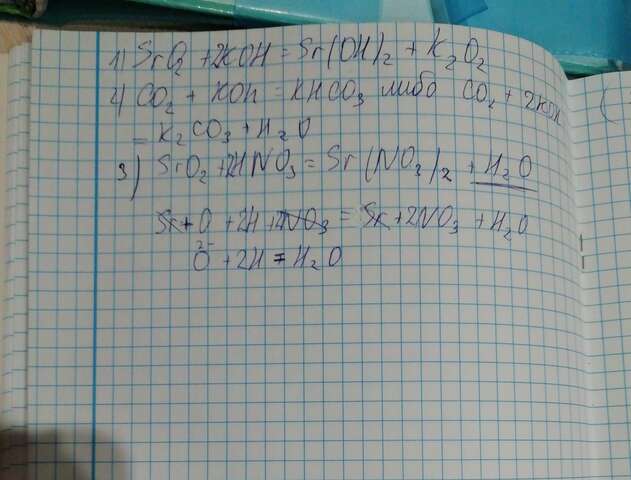 1) SrO2 + 2KOH = Sr(OH)2 + K2O2
2) CO2 + KOH = KHCO3 либо CO2 + 2KOH
= K2CO3 + H2O
3) SrO2 + 2HNO3 = Sr(NO3)2 + H2O
Sr + O + 2H + 2NO3 = Sr + 2NO3 + H2O
O2- + 2H = H2O
(